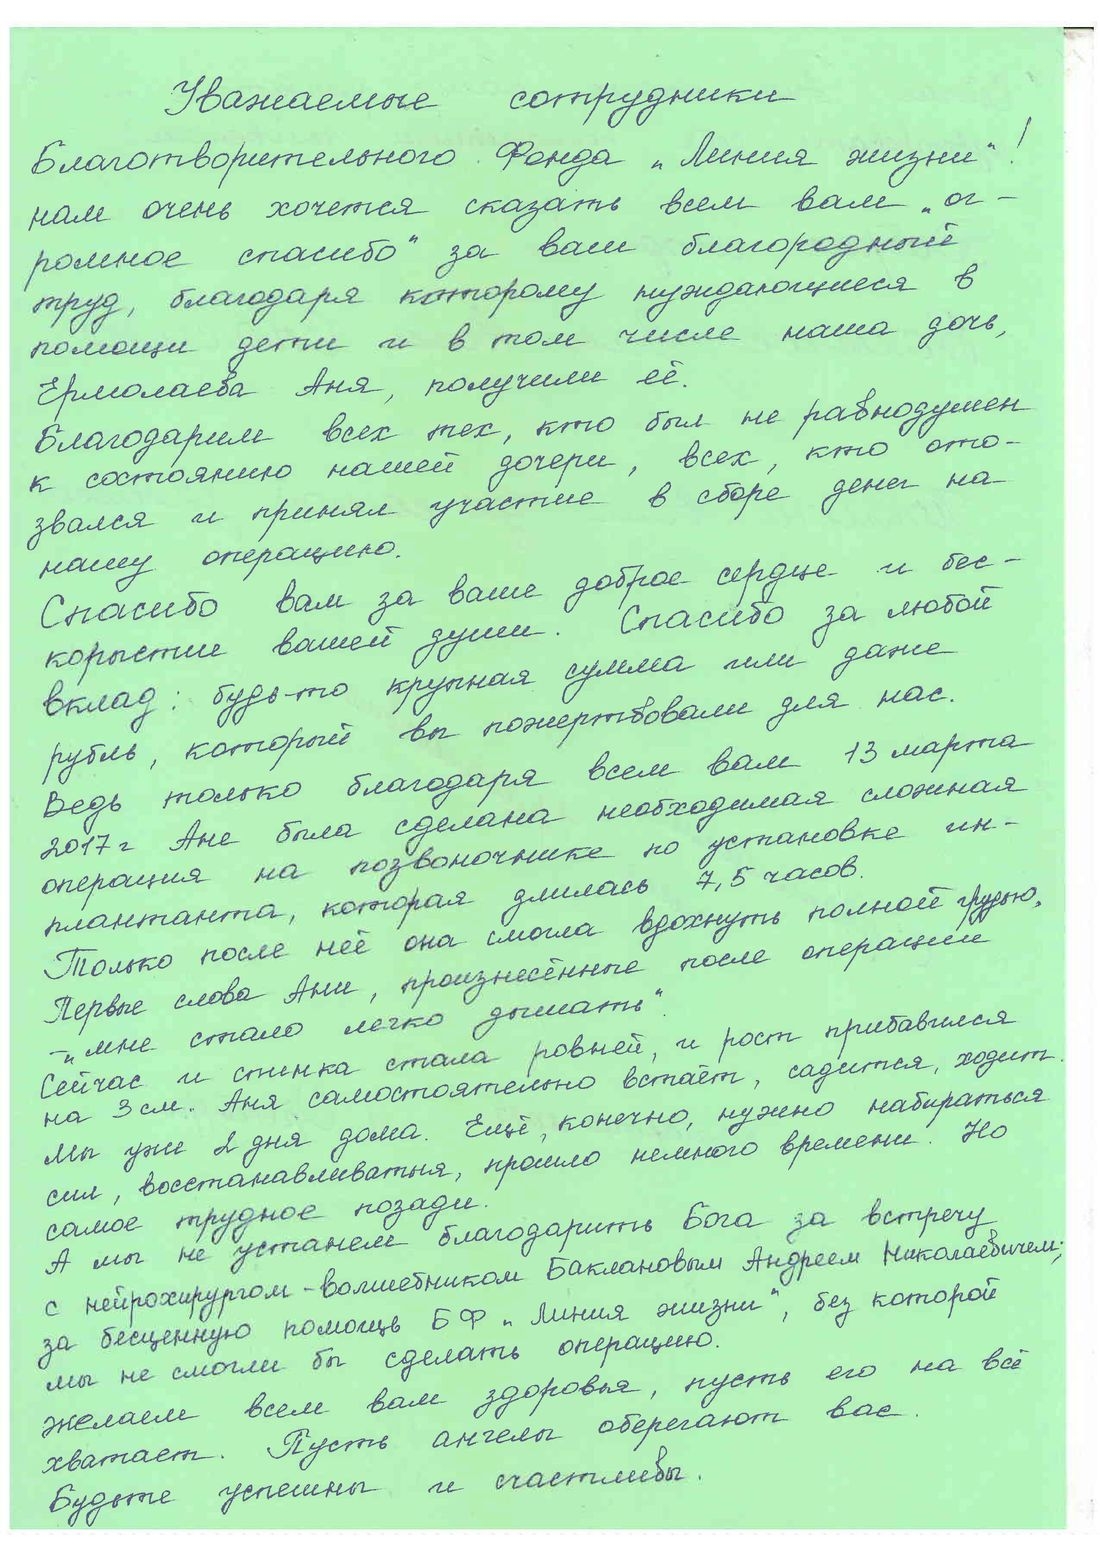 Уважаемые сотрудники
Благотворительного Фонда „Линия жизни“!
нам очень хочется сказать всем вам „ог-
ромное спасибо“ за ваш благородный
труд, благодаря которому нуждающиеся в
помощи дети и в том числе наша дочь,
Ермолаева Аня, получили её.
Благодарим всех тех, кто был не равнодушен
к состоянию нашей дочери, всех, кто ото-
звался и принял участие в сборе денег на
нашу операцию.
Спасибо вам за ваше доброе сердце и бес-
корыстие вашей души. Спасибо за любой
вклад: будь-то крупная сумма или даже
рубль, который вы пожертвовали для нас.
Ведь только благодаря всем вам 13 марта
2017г Ане была сделана необходимая сложная
операция на позвоночнике по установке им-
плантанта, которая длилась 7,5 часов.
Только после неё она смогла вдохнуть полной грудью.
Первые слова Ани, произнесённые после операции
-„мне стало легко дышать“.
Сейчас и спинка стала ровней, и рост прибавился
на 3см. Аня самостоятельно встаёт, садится, ходит.
Мы уже 2 дня дома. Ещё, конечно, нужно набираться
сил, восстанавливаться, прошло немного времени. Но
самое трудное позади.
А мы не устанем благодарить Бога за встречу
с нейрохирургом-волшебником Баклановым Андреем Николаевичем;
за бесценную помощь БФ „Линия жизни“, без которой
мы не смогли бы сделать операцию.
Желаем всем вам здоровья, пусть его на всё
хватает. Пусть ангелы оберегают вас.
Будьте успешны и счастливы.